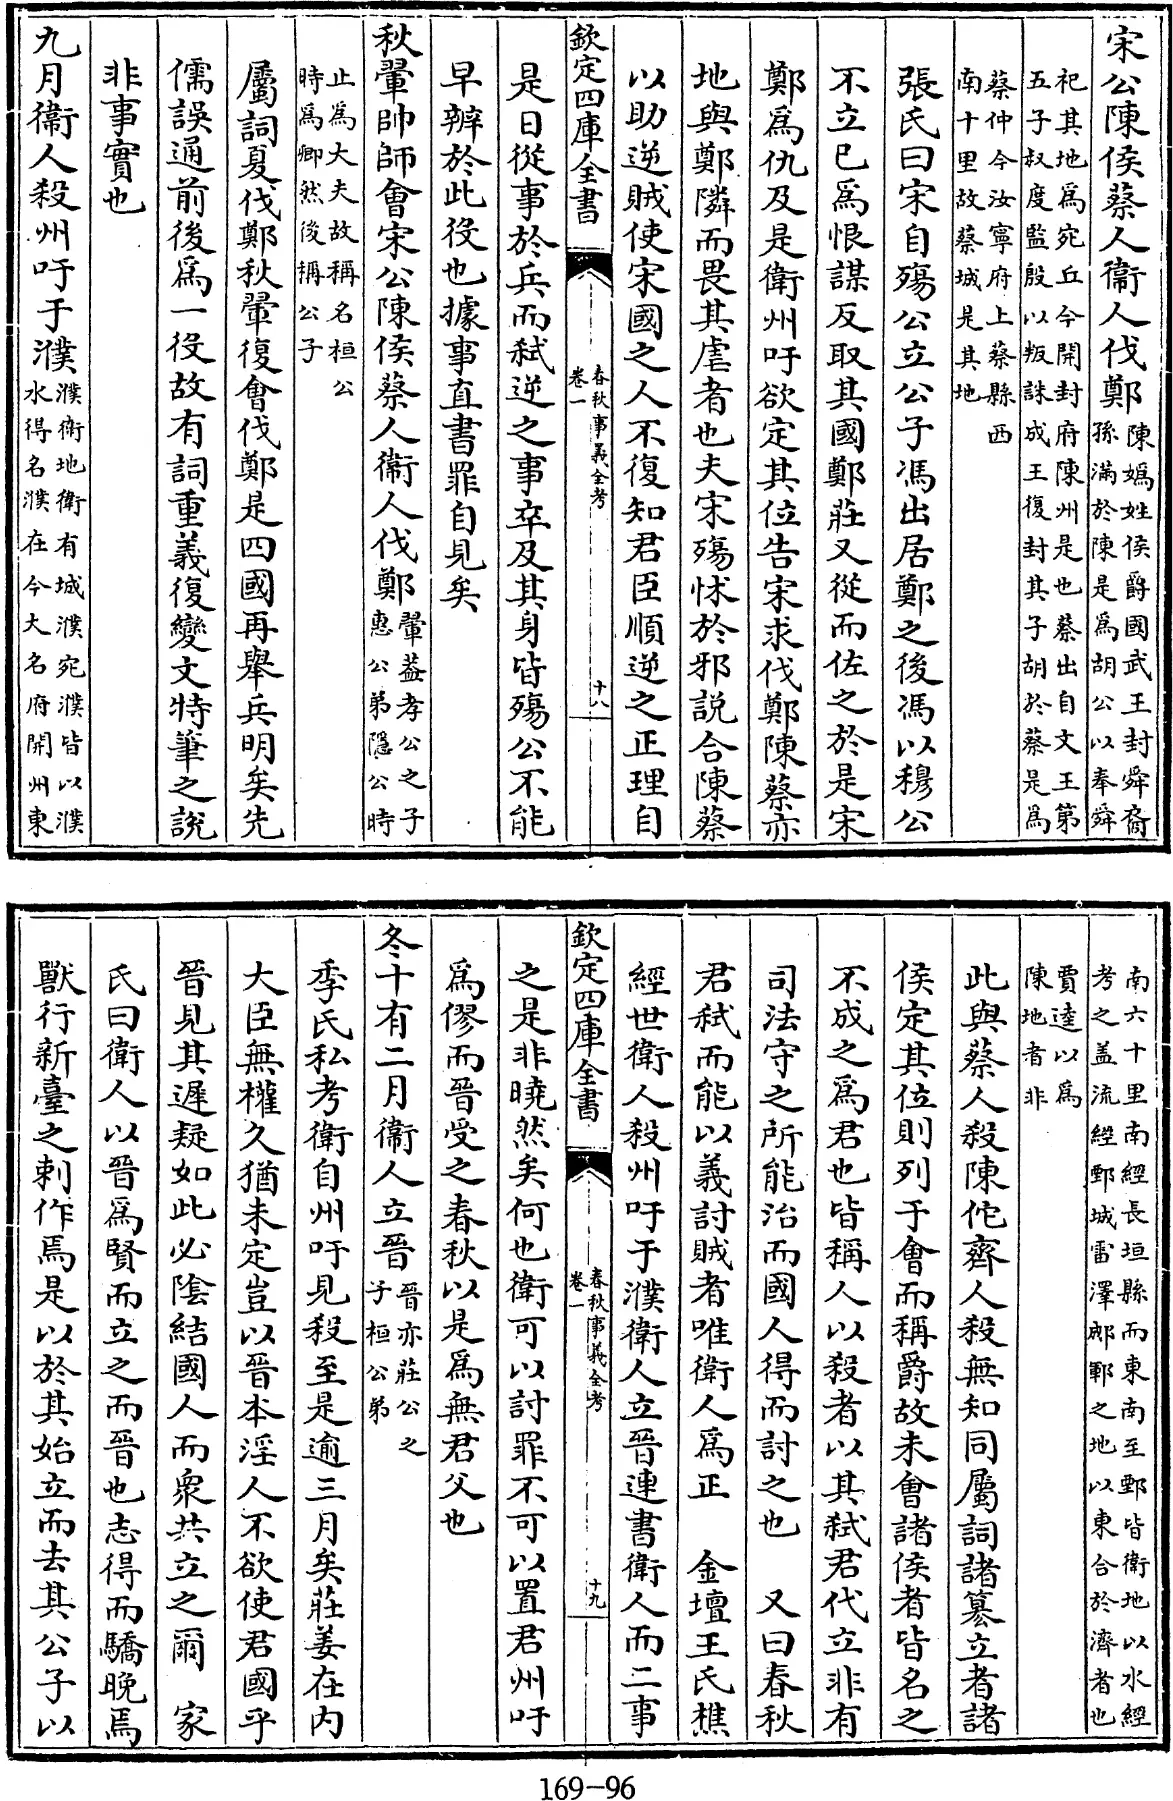 宋公陳侯蔡人衞人伐鄭陳媯姓侯爵國武王封舜裔
孫滿於陳是爲胡公以奉舜
祀其地爲宛丘今開封府陳州是也蔡出自文王第
五子叔度監殷以叛誅成王復封其子胡於蔡是爲
蔡仲今汝寧府上蔡縣西
南十里故蔡城是其地
張氏曰宋自殤公立公子馮出居鄭之後馮以穆公
不立已爲恨謀反取其國鄭莊又從而佐之於是宋
鄭爲仇及是衛州吁欲定其位告宋求伐鄭陳蔡亦
地與鄭隣而畏其虐者也夫宋殤怵於邪説合陳蔡
以助逆賊使宋國之人不復知君臣順逆之正理自
欽定四庫全書
春秋事義全考
卷一
十八
是日從事於兵而弑逆之事卒及其身皆殤公不能
早辨於此役也據事直書罪自見矣
秋翬帥師會宋公陳侯蔡人衞人伐鄭翬葢孝公之子
惠公弟隱公時
止爲大夫故稱名桓公
時爲卿然後稱公子
屬詞夏伐鄭秋翬復會伐鄭是四國再舉兵明矣先
儒誤通前後爲一役故有詞重義復變文特筆之説
非事實也
九月衞人殺州吁于濮濮衛地衛有城濮宛濮皆以濮
水得名濮在今大名府開州東
南六十里南經長垣縣而東南至鄄皆衛地以水經
考之盖流經鄄城雷澤郕鄆之地以東合於濟者也
賈逵以爲
陳地者非
此與蔡人殺陳佗齊人殺無知同屬詞諸簒立者諸
侯定其位則列于會而稱爵故未會諸侯者皆名之
不成之爲君也皆稱人以殺者以其弑君代立非有
司法守之所能治而國人得而討之也　又曰春秋
君弑而能以義討賊者唯衛人爲正　金壇王氏樵
經世衛人殺州吁于濮衛人立晉連書衛人而二事
欽定四庫全書
春秋事義全考
卷一
十九
之是非曉然矣何也衛可以討罪不可以置君州吁
爲僇而晉受之春秋以是爲無君父也
冬十有二月衞人立晉晉亦莊公之
子桓公弟
季氏私考衛自州吁見殺至是逾三月矣莊姜在内
大臣無權久猶未定豈以晉本淫人不欲使君國乎
晉見其遲疑如此必陰結國人而衆共立之爾　家
氏曰衛人以晉爲賢而立之而晉也志得而驕晚焉
獸行新臺之刺作焉是以於其始立而去其公子以
169-96